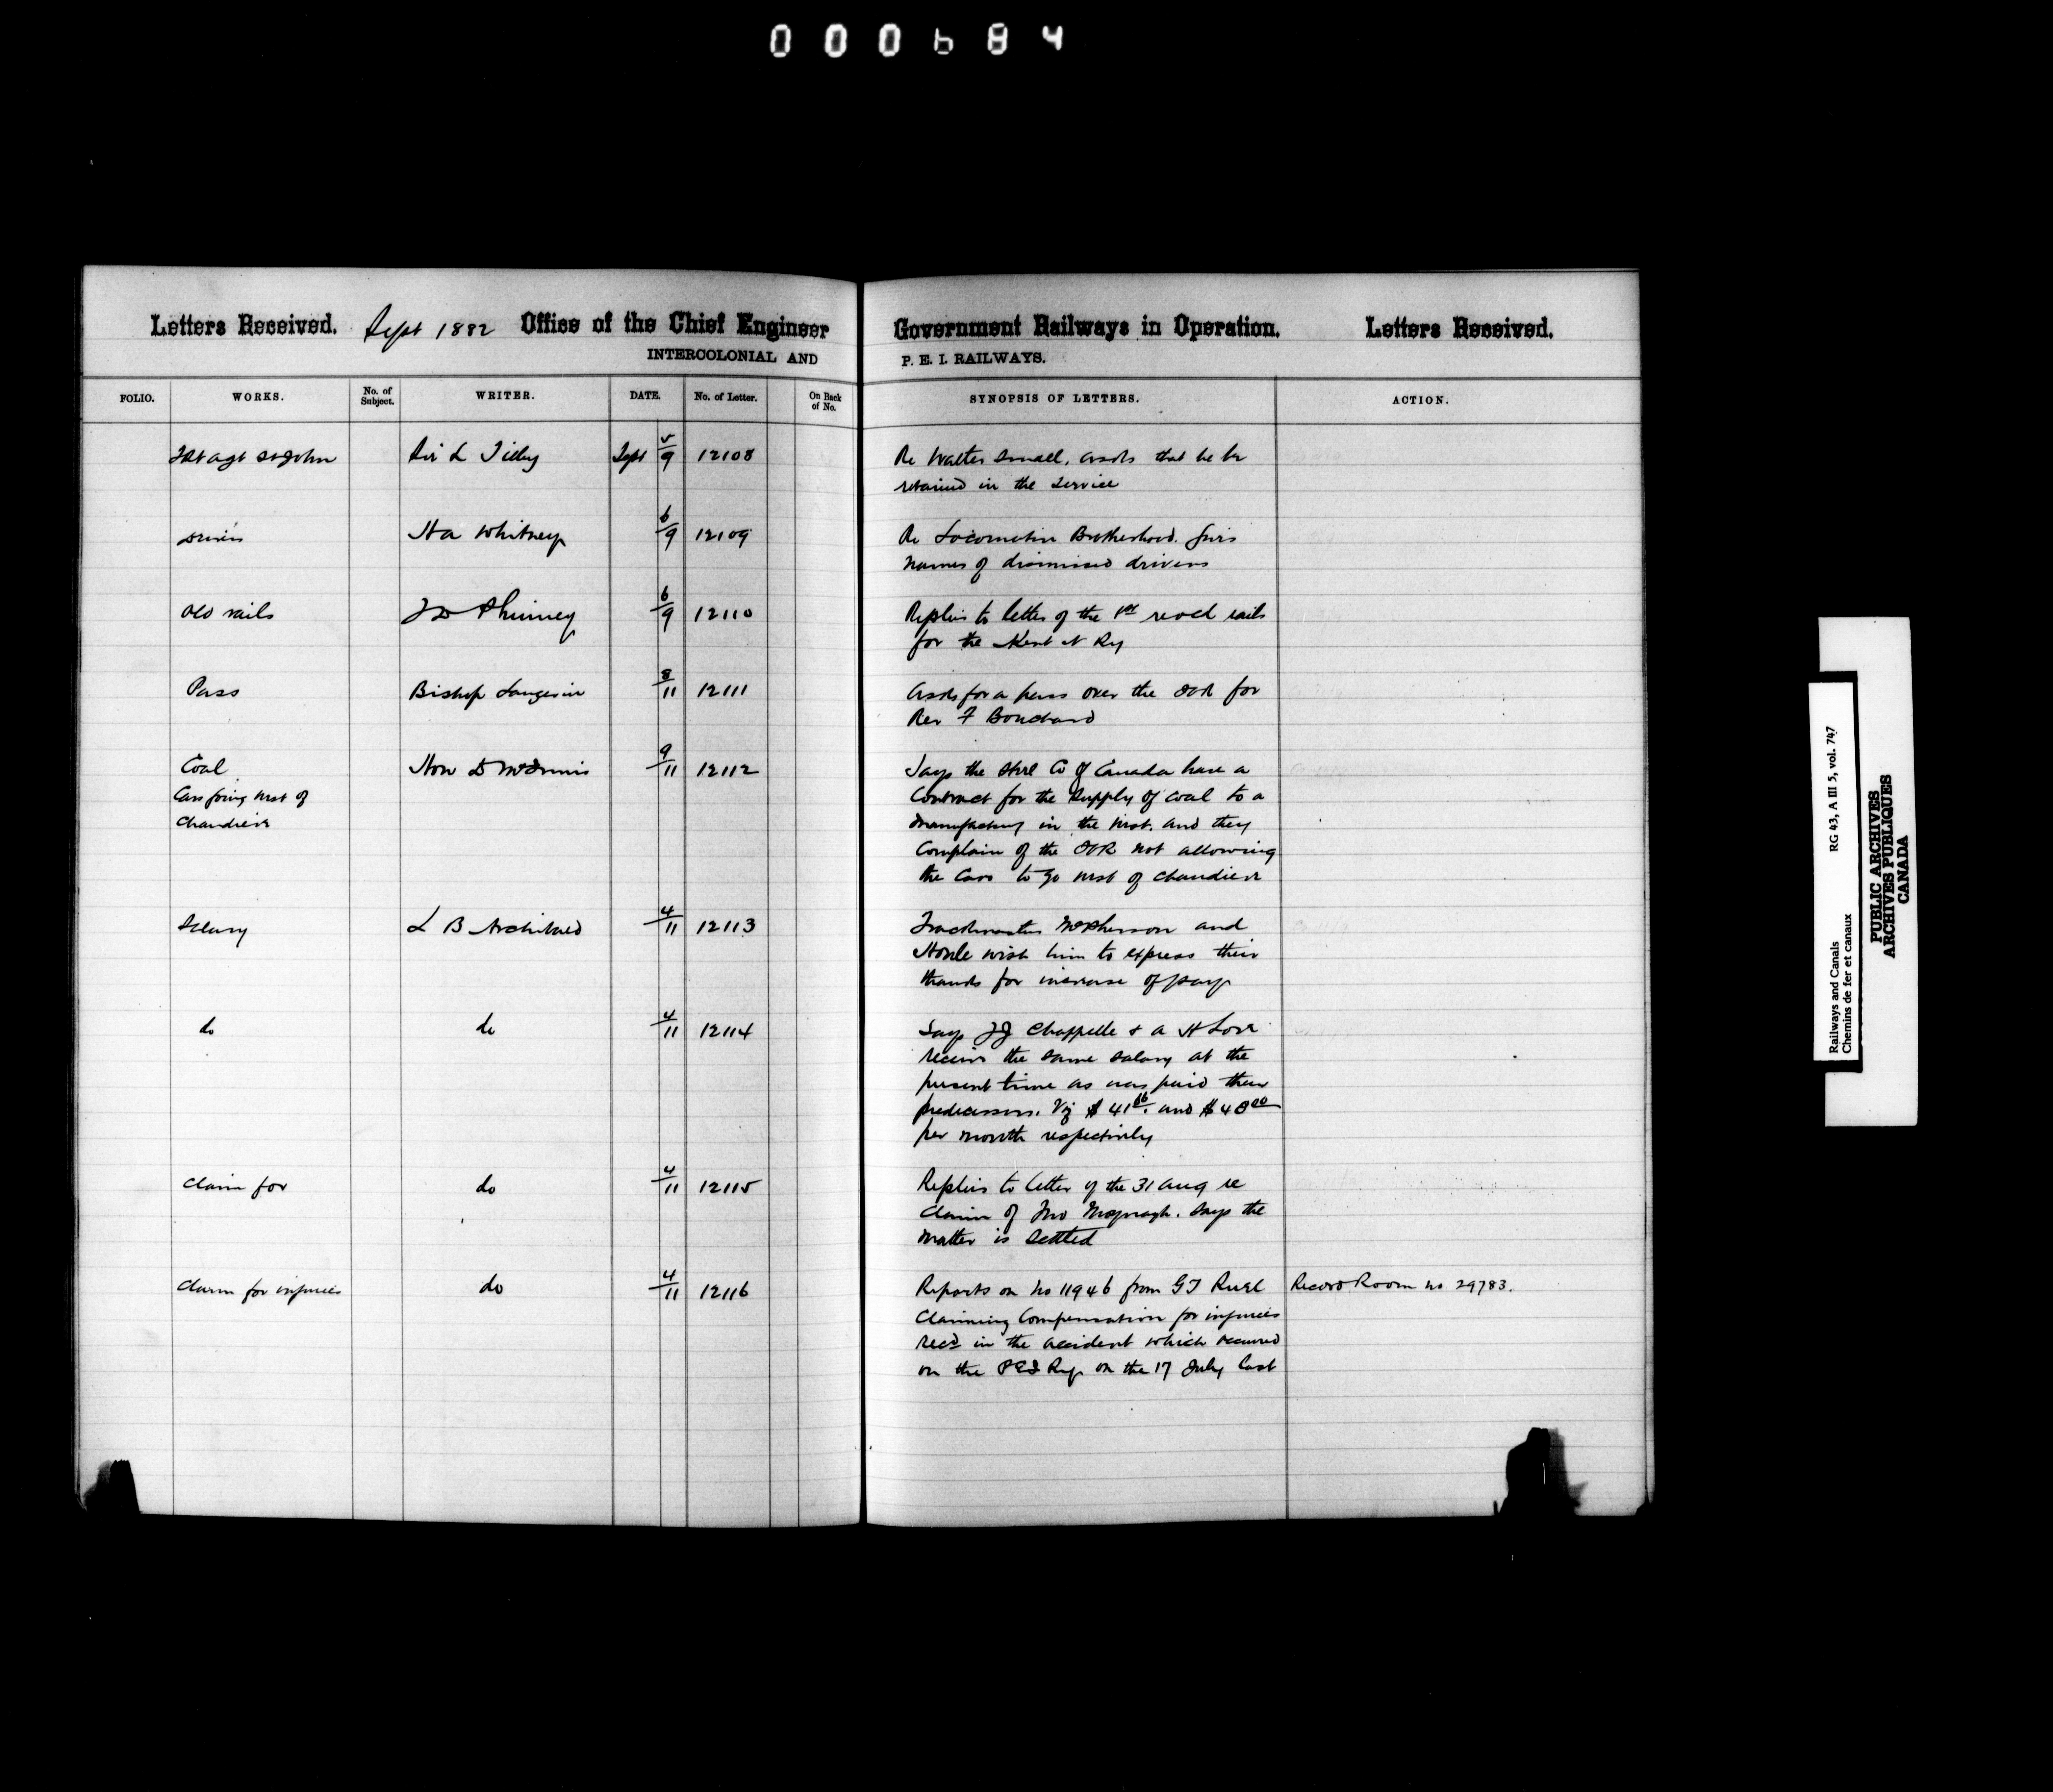 000684
Letters Received. Sept 1882 Office of the Chief Engineer
INTERCOLONIAL AND
Government Railways in Operation. Letters Received.
P. E. I. RAILWAYS.
FOLIO. WORKS. No. of Subject. WRITER. DATE. No. of Letter. On Back of No.
SYNOPSIS OF LETTERS. ACTION.
Frt agt St John Sir L Tilley Sept 5/9 12108
Re Walter Small. asks that he be
retained in the service
Drivers H A Whitney 6/9 12109
Re Locomotive Brotherhood. Gives
names of dismissed drivers
Old rails J D Phinney 6/9 12110
Replies to letter of the 1st re old rails
for the Kent N Ry
Pass Bishop Langevin 8/11 12111
Asks for a pass over the ICR for
Rev F Bouchard
Coal Hon D McInnis 9/11 12112
Cars going west of
Chaudiere
Says the Steel Co of Canada have a
contract for the supply of coal to a
manufactory in the west. and they
complain of the ICR not allowing
the cars to go west of Chaudiere
Salary L B Archibald 4/11 12113
Trackmasters McPherson and
wish him to express their
thanks for increase of pay
do do 4/11 12114
Says J J Chappelle & A H Love
receive the same salary at the
present time as was paid their
predecessors. Viz $41 66. and $40 00
per month respectively
Claim for do 4/11 12115
Replies to letter of the 31 Aug re
claim of Jno. Says the
matter is settled
Claim for injuries do 4/11 12116
Reports on no 11946 from G T
claiming compensation for injuries
recd in the accident which occurred
on the PEI Ry on the 17 July last
Record Room no 29783.
Railways and Canals RG 43, A III 5, vol. 747
Chemins de fer et canaux
PUBLIC ARCHIVES
ARCHIVES PUBLIQUES
CANADA